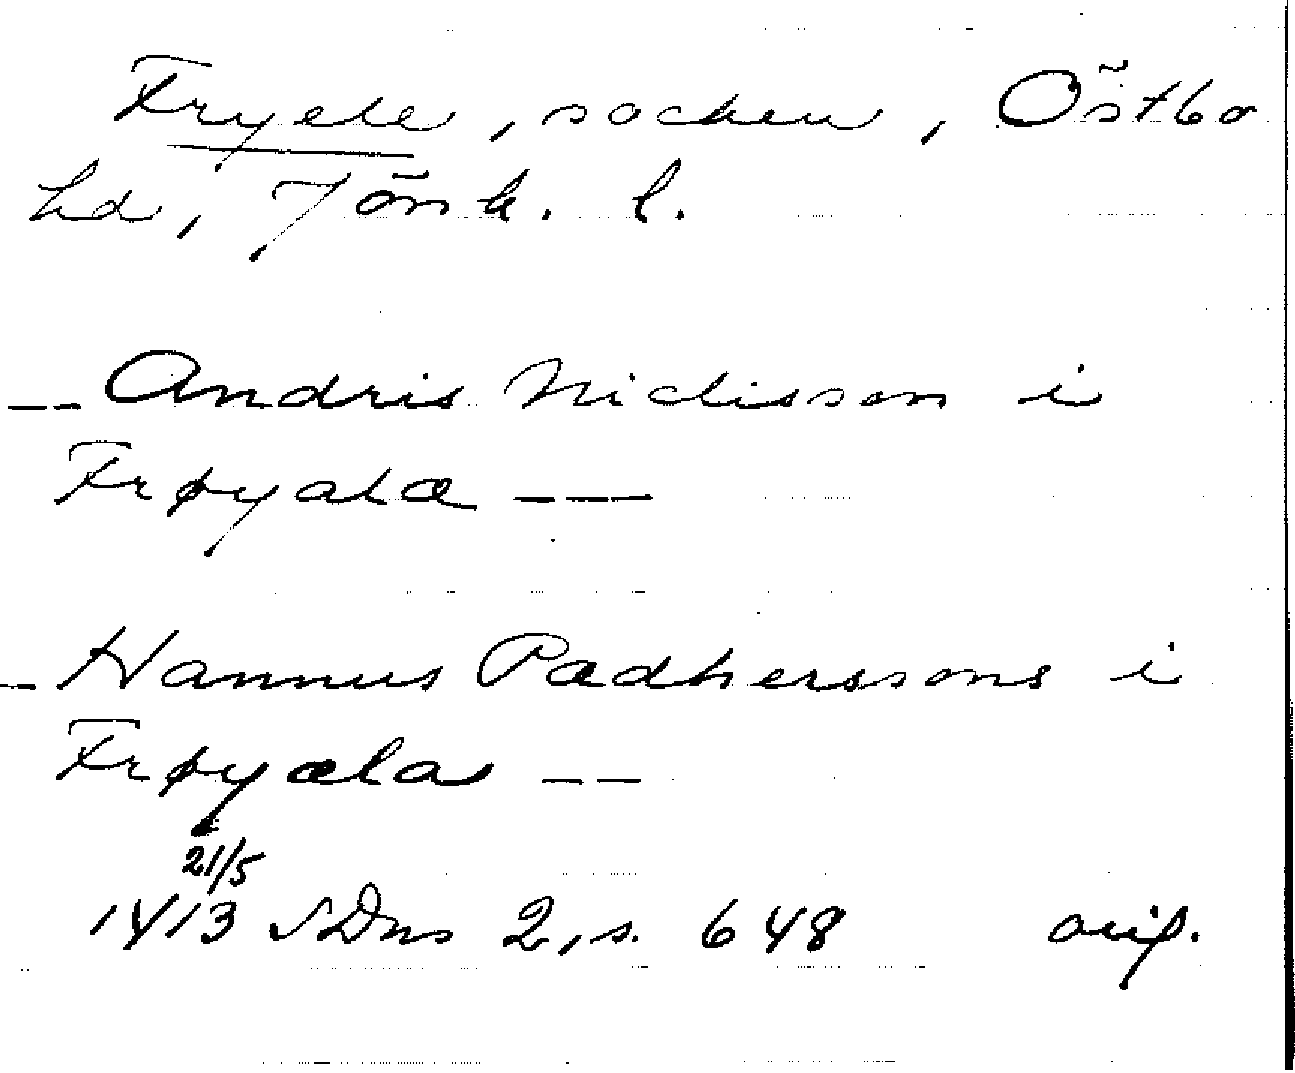 Fryele, socken, Östbo
hd, Jönk. l.
-- Andris Niclisson i
Frøyala ---
- Hannus Pædherssons i
Frøyæla --
21/5
1413 SDns 2, s. 648 orig.